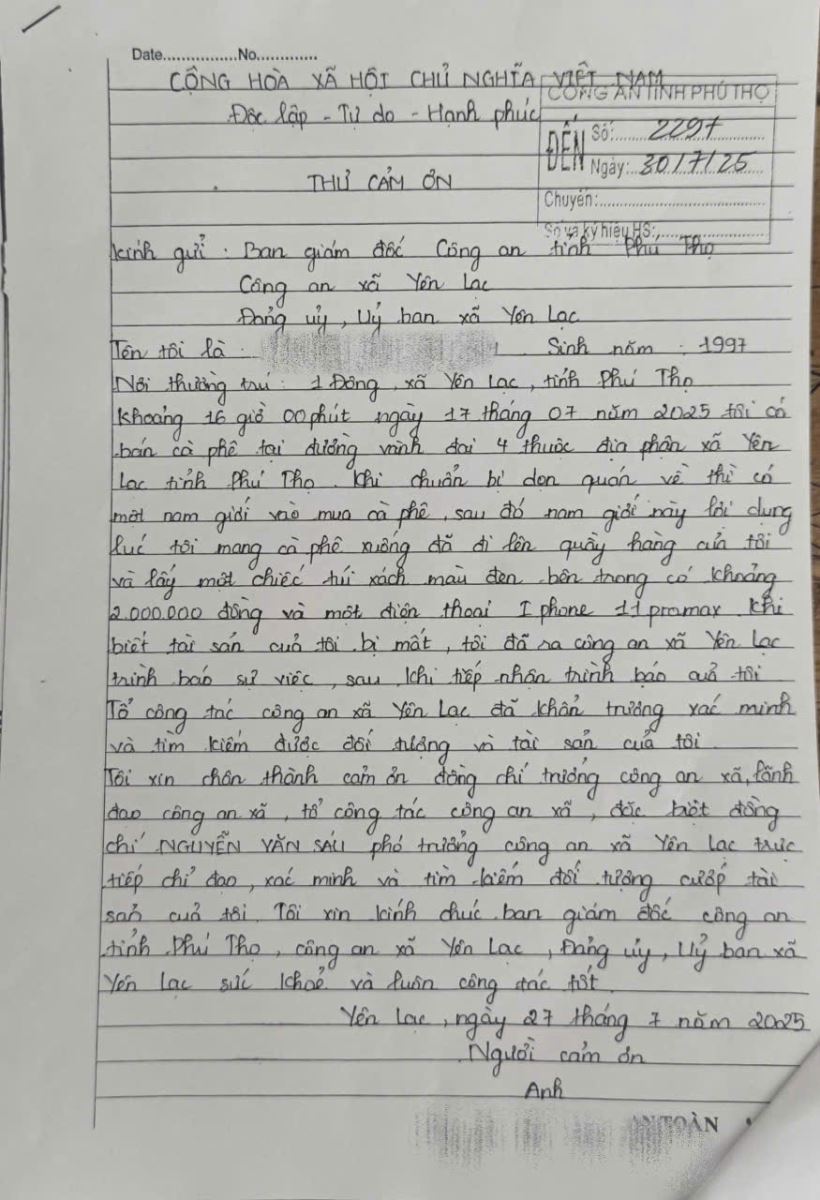 Date................No.............
CỘNG HOÀ XÃ HỘI CHỦ NGHĨA VIỆT NAM
Độc lập - Tự do - Hạnh phúc
CÔNG AN TỈNH PHÚ THỌ
ĐẾN
Số: 2297
Ngày: 30/7/25
Chuyển:
Số và ký hiệu HS:
THƯ CẢM ƠN
Kính gửi : Ban giám đốc Công an tỉnh Phú Thọ
Công an xã Yên Lạc
Đảng uỷ, Uỷ ban xã Yên Lạc
Tên tôi là : Sinh năm : 1997
Nơi thường trú : 1 Đông, xã Yên Lạc, tỉnh Phú Thọ
Khoảng 16 giờ 00 phút ngày 17 tháng 07 năm 2025 tôi có
bán cà phê tại đường vành đai 4 thuộc địa phận xã Yên
Lạc tỉnh Phú Thọ. Khi chuẩn bị dọn quán về thì có
một nam giới vào mua cà phê, sau đó nam giới này lợi dụng
lúc tôi mang cà phê xuống đã đi lên quầy hàng của tôi
và lấy một chiếc túi xách màu đen bên trong có khoảng
2.000.000 đồng và một điện thoại Iphone 11 promax. Khi
biết tài sản của tôi bị mất, tôi đã ra công an xã Yên Lạc
trình báo sự việc, sau khi tiếp nhận trình báo của tôi
Tổ công tác công an xã Yên Lạc đã khẩn trương xác minh
và tìm kiếm được đối tượng và tài sản của tôi.
Tôi xin chân thành cảm ơn đồng chí trưởng công an xã, lãnh
đạo công an xã, tổ công tác công an xã, đặc biệt đồng
chí NGUYỄN VĂN SÁU phó trưởng công an xã Yên Lạc trực
tiếp chỉ đạo, xác minh và tìm kiếm đối tượng cướp tài
sản của tôi. Tôi xin kính chúc ban giám đốc công an
tỉnh Phú Thọ, công an xã Yên Lạc, Đảng ủy, Uỷ ban xã
Yên Lạc sức khoẻ và luôn công tác tốt.
Yên Lạc, ngày 27 tháng 7 năm 2025
Người cảm ơn
Anh
AN TOÀN